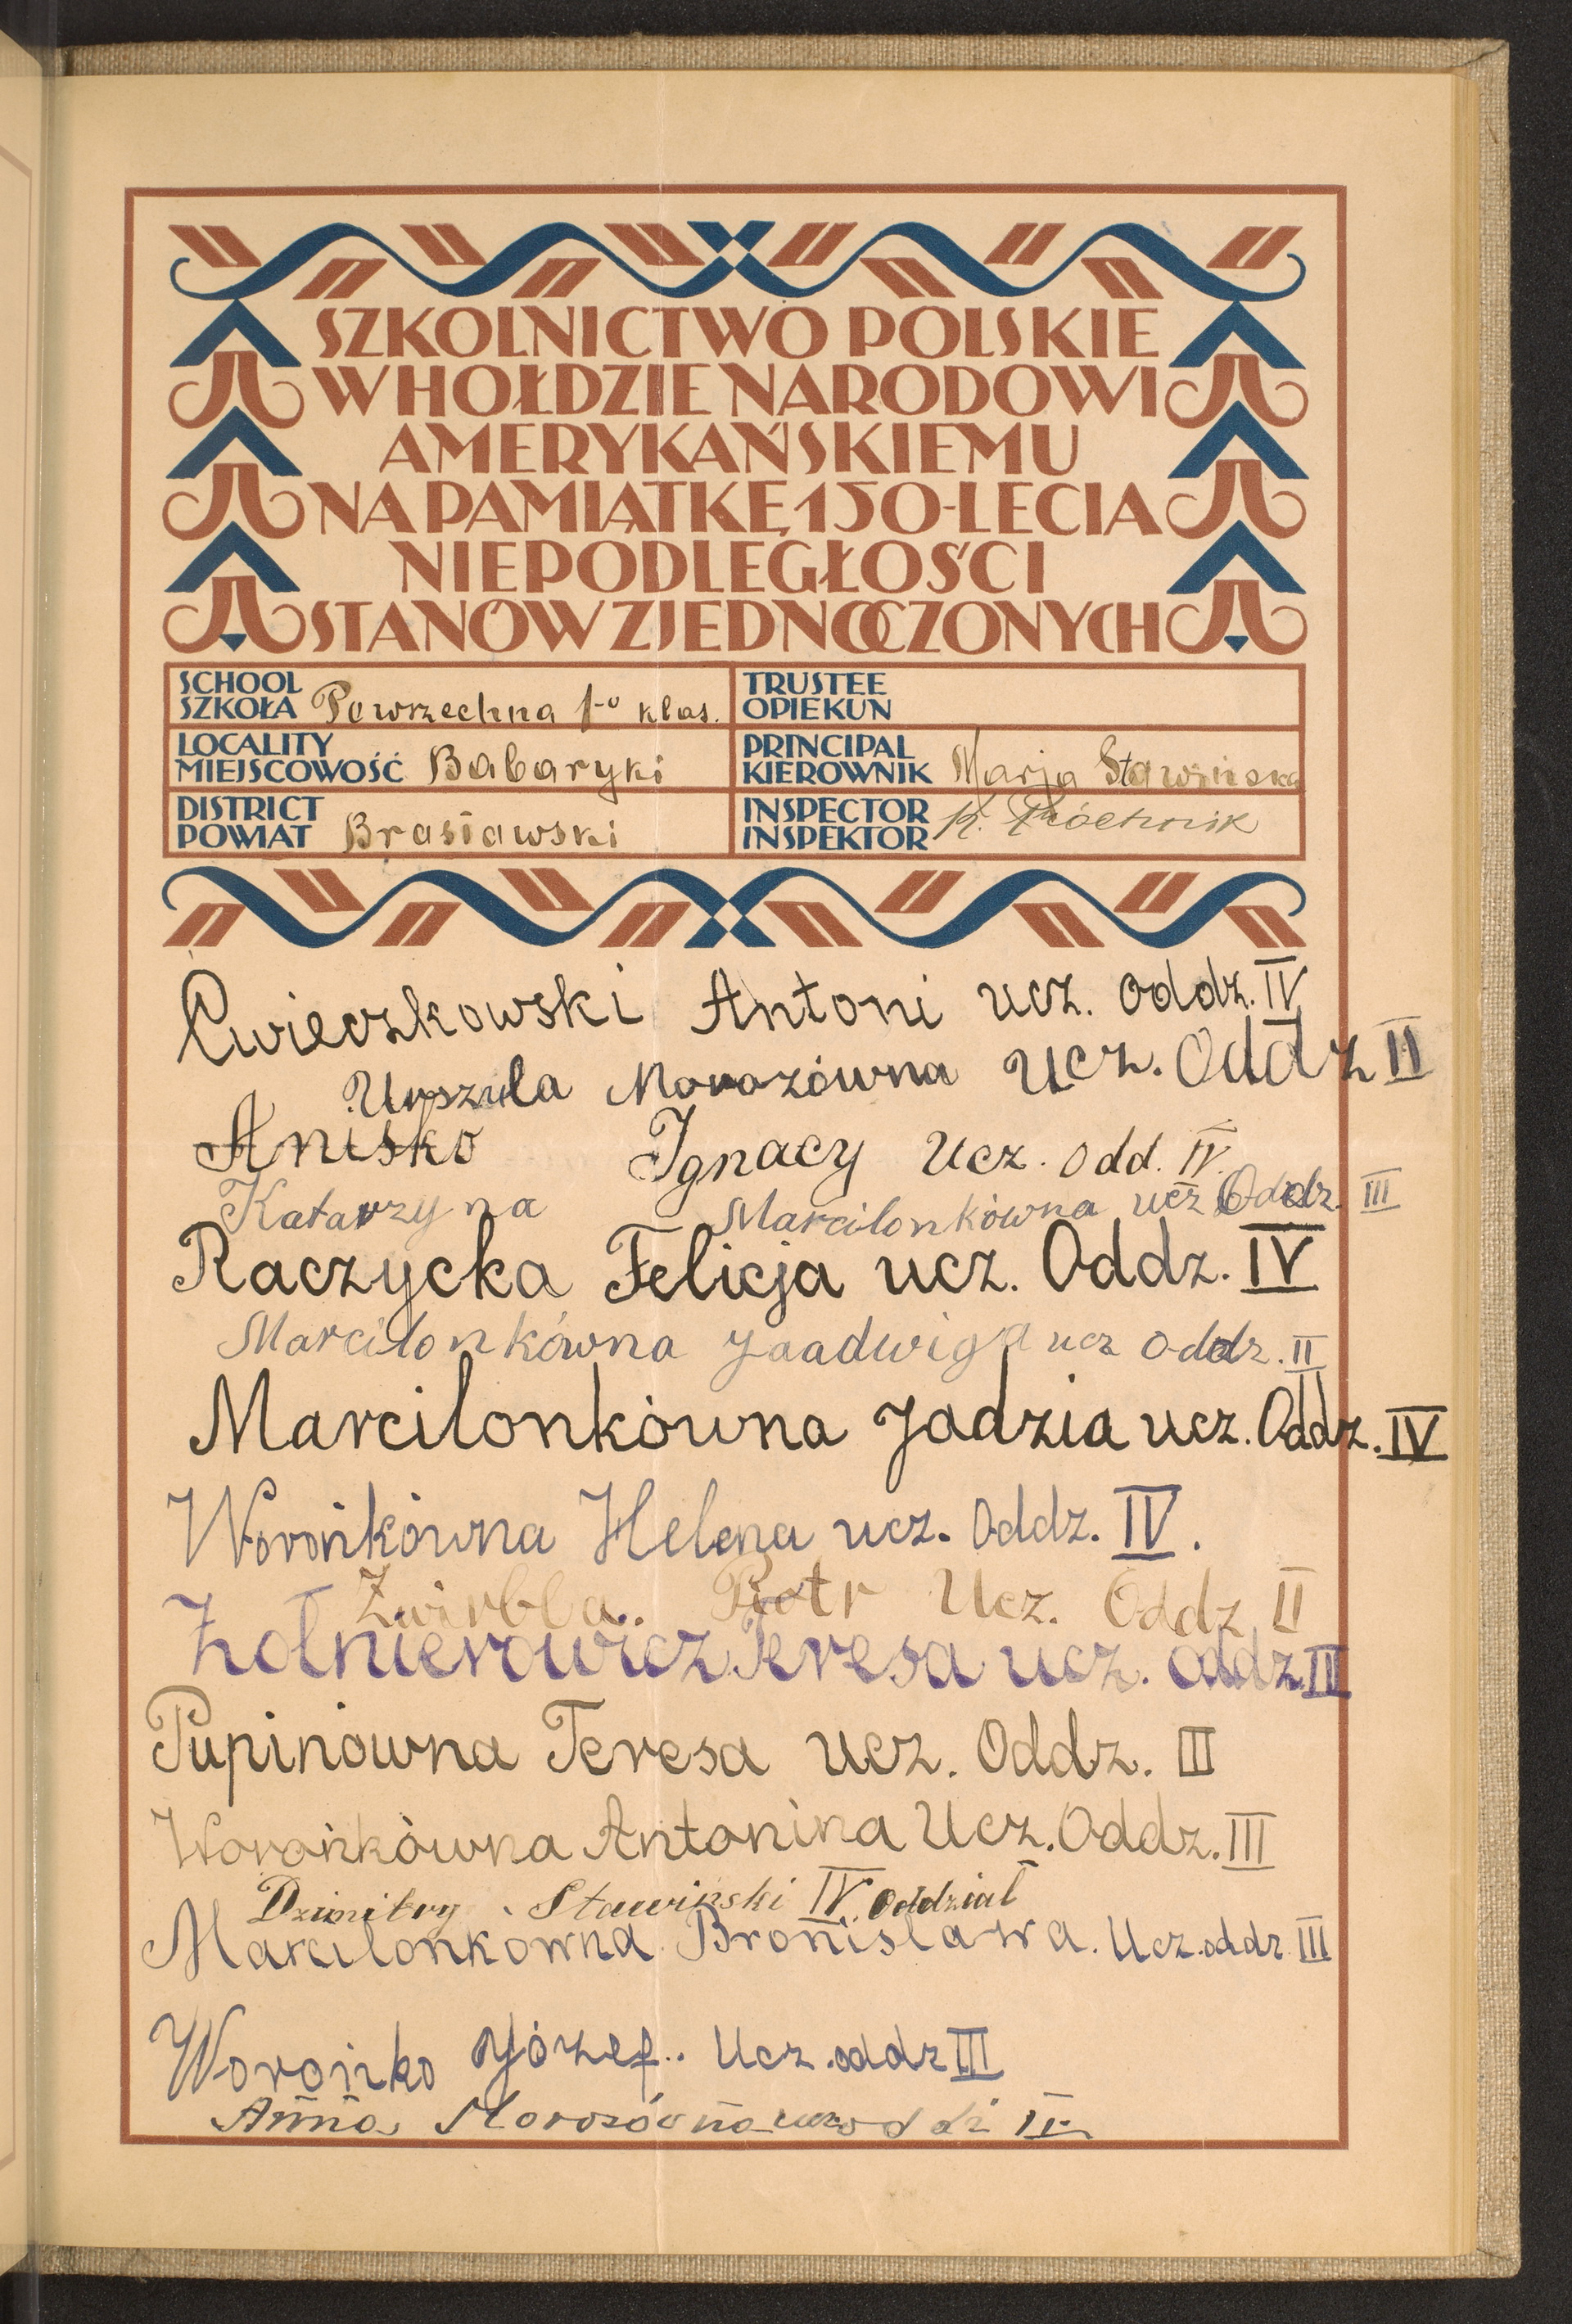 SZKOLNICTWO POLSKIE
W HOŁDZIE NARODOWI
AMERYKAŃSKIEMU
NA PAMIĄTKĘ 150-LECIA
NIEPODLEGŁOŚCI
STANÓW ZJEDNOCZONYCH
SCHOOL
SZKOŁA Powrzechna 1-o klas.
TRUSTEE
OPIEKUN
LOCALITY
MIEJSCOWOŚĆ Babaryki
PRINCIPAL
KIEROWNIK Marja Stawińska
DISTRICT
POWIAT Brasławski
INSPECTOR
INSPEKTOR K.
Ćwieczkowski Antoni ucz. oddz. IV
Urszula Morozówna Ucz. Oddz II
Anisko Ignacy Ucz. odd. IV.
Katarzyna Marcilonkówna ucz Oddz. III
Raczycka Felicja ucz. Oddz. IV
Marcilonkówna Jaadwiga ucz oddz. II
Marcilonkówna Jadzia ucz. Oddz. IV
Worońkówna Helena ucz. Oddz. IV.
Zwirbla. Piotr Ucz. Oddz II
Żołnierowicz Teresa ucz. oddz. III
Pupinówna Teresa ucz. Oddz. III
Worońkówna Antonina Ucz. Oddz. III
Dzimitry Stawiński IV Oddział
Marcilonkowna Bronisława. Ucz. oddz III
Worońko Józef.. Ucz. oddz III
Anna Morozówna ucz oddz II